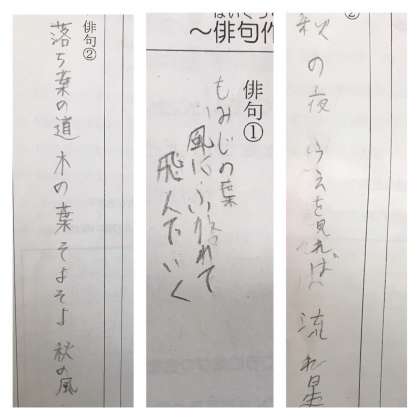 俳句②
落ち葉の道 木の葉そよそよ 秋の風
～俳句作
俳句①
もみじの葉
風にふかれて
飛んでいく
②
秋の夜 うえを見れば 流れ星